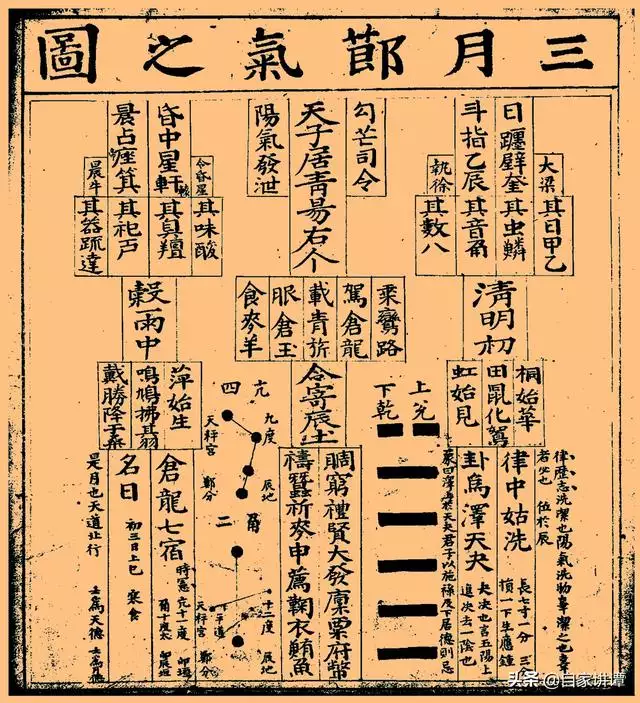 三月莭氣之圖
大梁
其日甲乙
日躔壁奎
其虫鱗
斗指乙辰
其音角
執徐
其數八
勾芒司令
天子居青昜右个
陽氣發泄
其味酸
昏中星軒
其臭羶
晨占
箕
其祀戸
晨牛
其器疏達
清明初
乘鸞路
駕倉龍
載青旂
眼倉玉
食麥羊
穀雨中
桐始華
田鼠化鴽
虹始見
令寄辰土
萍始生
鳴鳩拂其羽
戴勝降于桑
上兌
下乾
亢
四
九度
辰地
天秤宮
鄭分
律歷志洗潔也陽氣洗物辜潔之也
者必也 位於辰
律中姑洗
長七寸一分
下生應鐘
卦為澤天夬
夬決也言五陽上
進決去一陰也
君子以施祿及下居德則忌
賙窮禮賢大發廩粟府幣
禱蠶祈麥申薦鞠衣鮪魚
角
二
十二度
辰地
平道
天秤宮
鄭分
倉龍七宿
名日
初三日上巳
寒食
是月也天道北行
壬為天德
頭條@自家讲谭